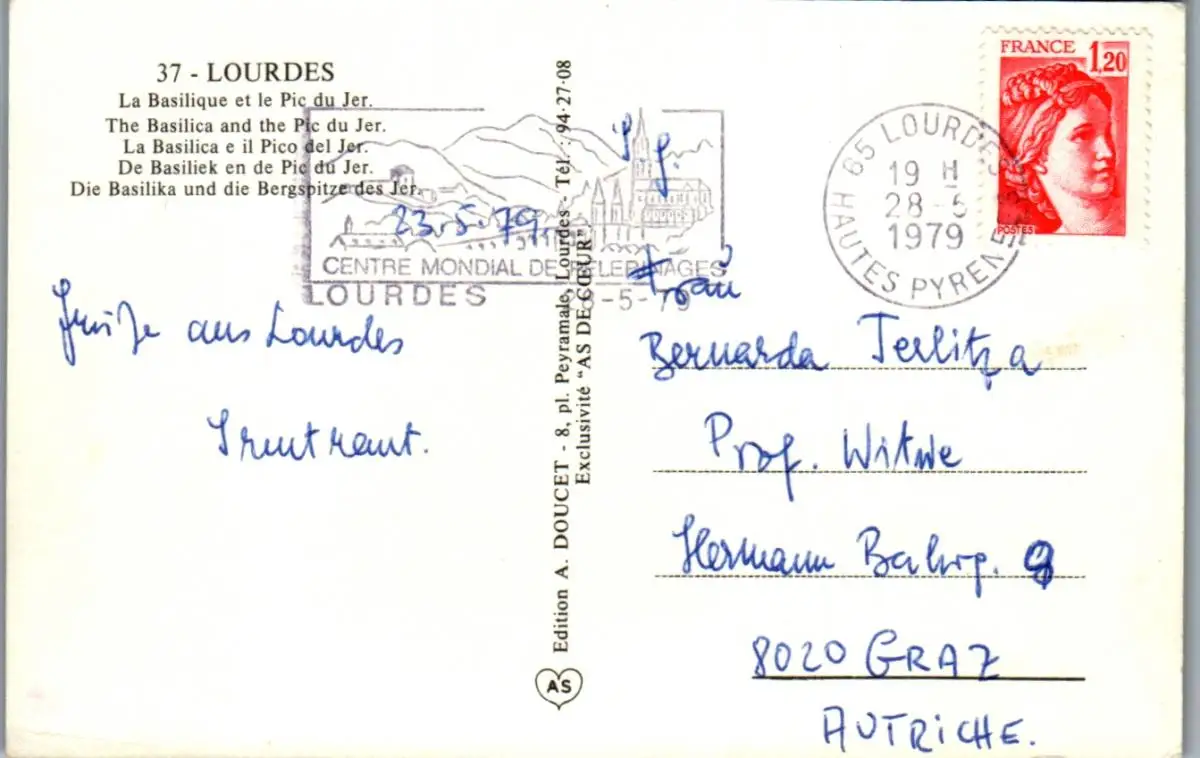 37 - LOURDES
La Basilique et le Pic du Jer.
The Basilica and the Pic du Jer.
La Basilica e il Pico del Jer.
De Basiliek en de Pic du Jer.
Die Basilika und die Bergspitze des Jer.
23.5.79.
CENTRE MONDIAL DE PELERINAGES
LOURDES 28-5-79
aus Lourdes
Edition A. DOUCET - 8, pl. Peyramale, Lourdes - Tél. : 94-27-08
Exclusivité "AS DE CŒUR"
AS
FRANCE 1,20
POSTES
65 LOURDES
19 H
28-5
1979
HAUTES PYRENEES
Frau
Bernarda Terlitza
Prof. Witwe
Hermann Bahrg. 9
8020 GRAZ
AUTRICHE.